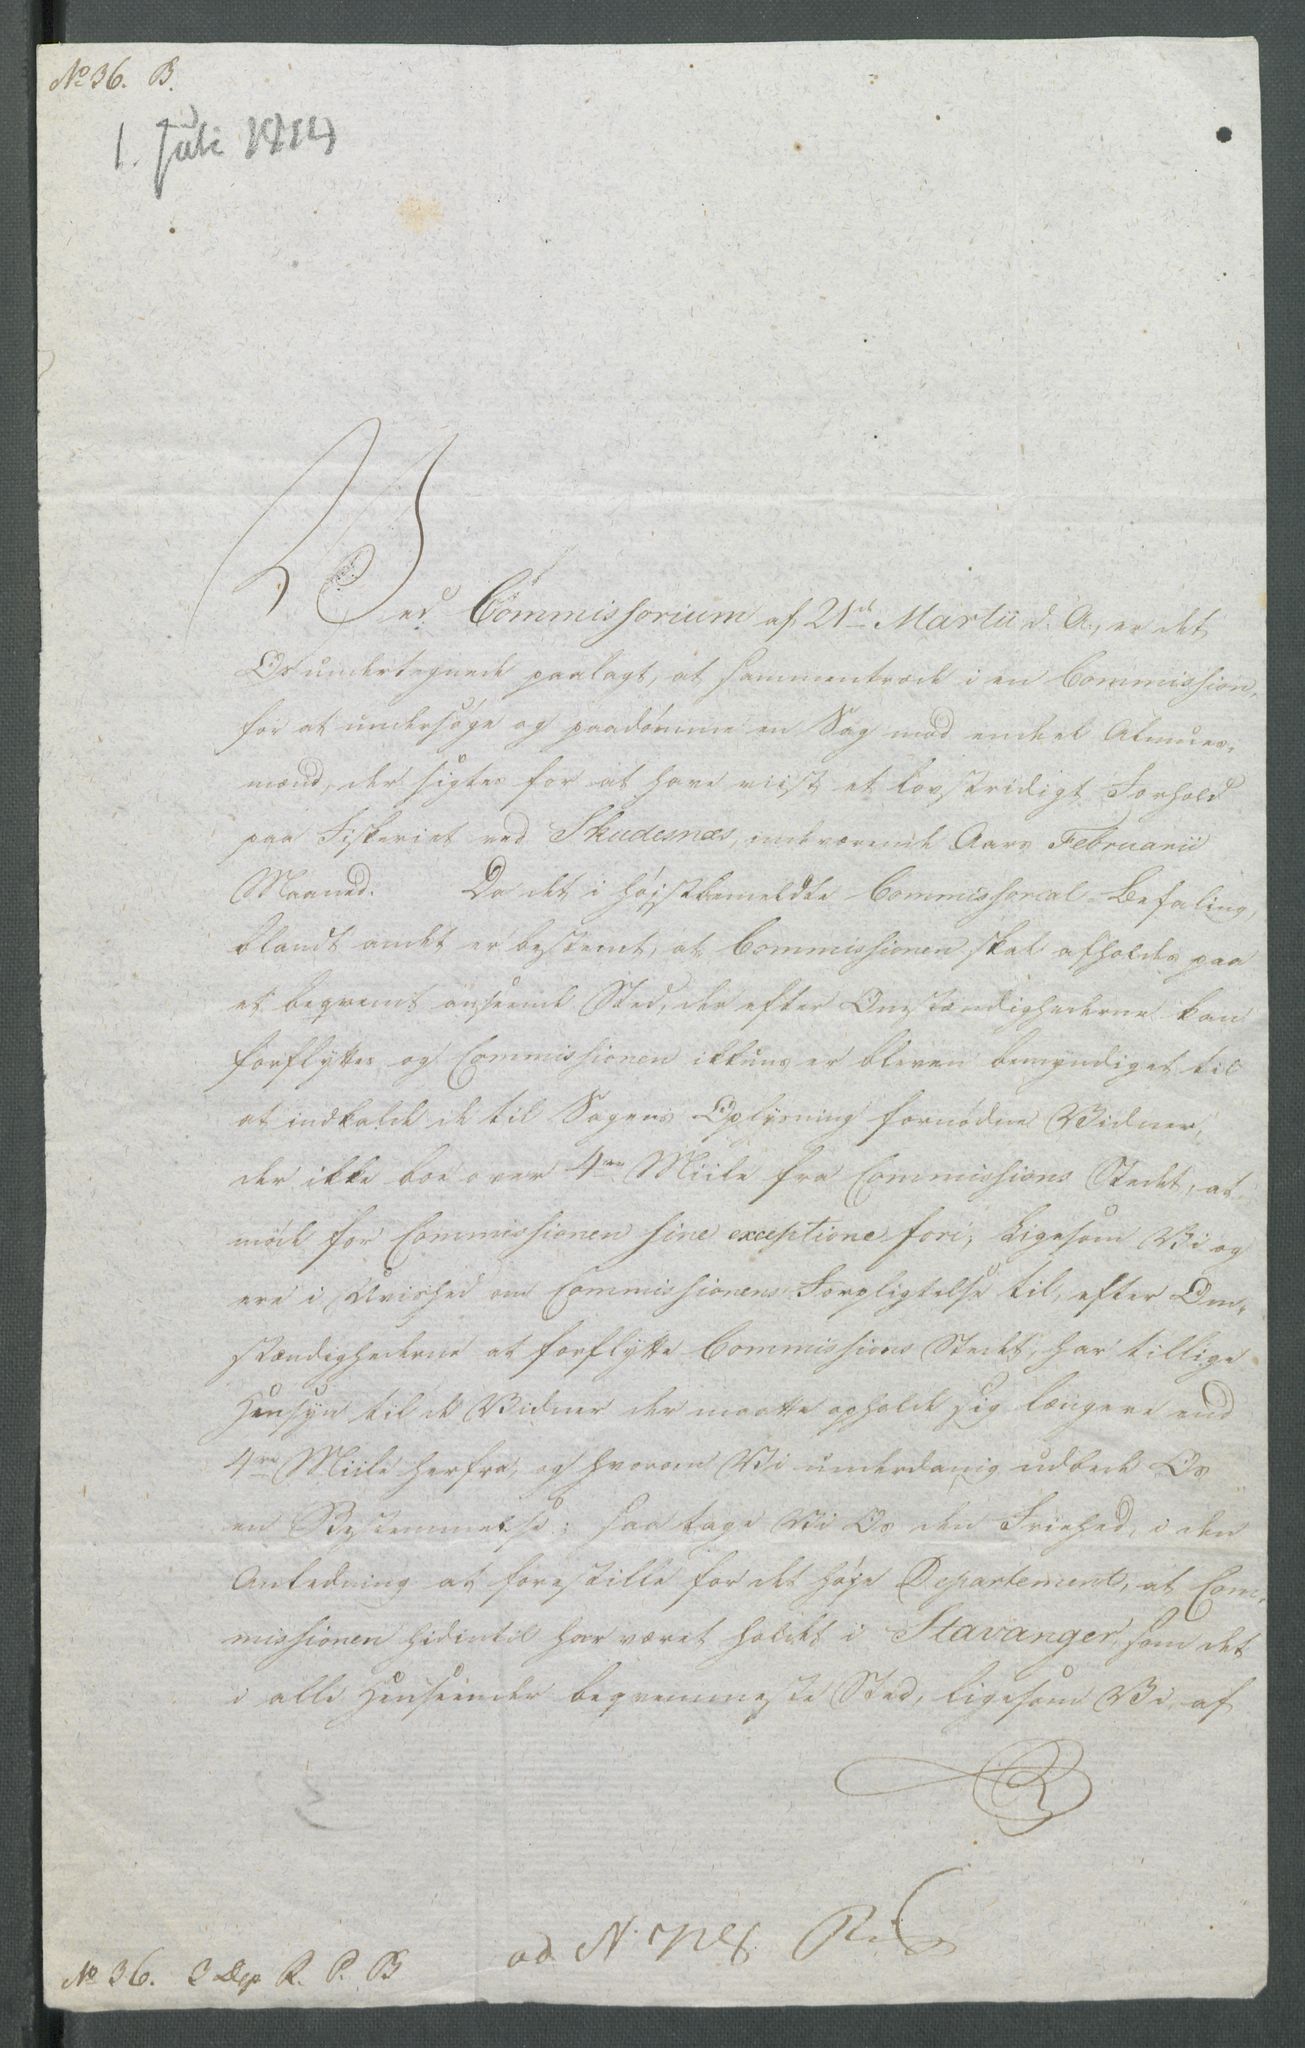 No 36. B.
1. Juli 1814
Ved Commissorium af 21de Martii d. A., er det
Os undertegnede paalagt, at sammentræde i en Commission,
for at undersøge og paadømme en Sag mod endeel Almues-
mænd, der sigtes for at have viist et lovstridigt Forhold
paa Fiskeriet ved Skudesnæs, indeværende Aars Februarii
Maaned. Da det i højstbemeldte Commissorial-Befaling,
blandt andet er bestemt, at Commissionen skal afholdes paa
et beqvemt anseende Sted, der efter Omstændighederne kan
forflyttes og Commissionen ikkuns er bleven bemyndiget til
at indkalde de til Sagens Oplysning fornødne Vidner,
der ikke boe over 4re Miile fra Commissions Stedet, at
møde for Commissionen sine exceptione fori; ligesom Vi og
ere i Uvished om Commissionens Forpligtelse til, efter Om-
stændighederne at forflytte Commissions Stedet, har tillige
Hensyn til de Vidner der maatte opholde sig længere end
4re Miile herfra, og hvorom Vi underdanig udbede Os
en Bestemmelse: saa tage Vi Os den Friehed, i den
Anledning at forestille for det høje Departement, at Com-
missionen hidindtil har været holdet i Stavanger, som det
i alle Henseender beqvemmeste Sted, ligesom Vi af
R
ad N.
No 36. 3 Dep R. P. B